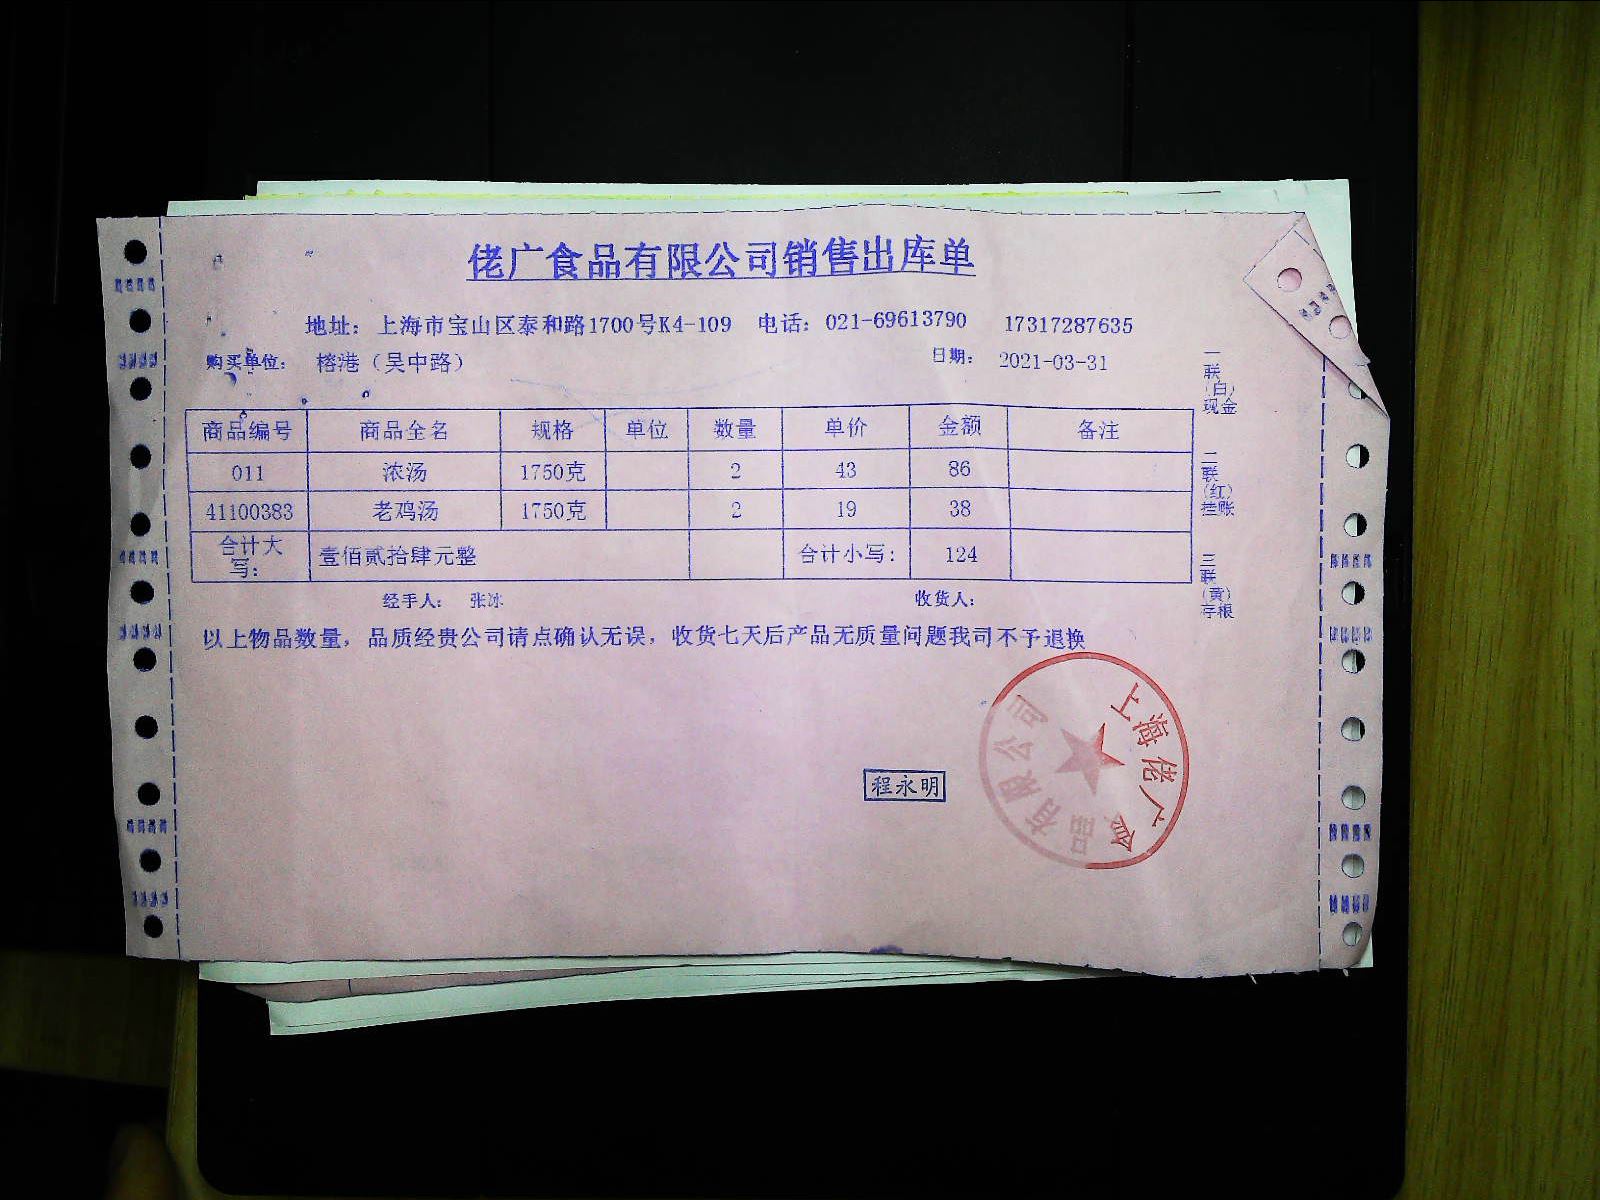 佬广食品有限公司销售出库单
地址：上海市宝山区泰和路1700号K4-109 电话：021-69613790 17317287635
购买单位： 榕港（吴中路） 日期： 2021-03-31
商品编号 商品全名 规格 单位 数量 单价 金额 备注
011 浓汤 1750克 2 43 86
41100383 老鸡汤 1750克 2 19 38
合计大写： 壹佰贰拾肆元整 合计小写： 124
经手人： 张冰 收货人：
以上物品数量，品质经贵公司请点确认无误，收货七天后产品无质量问题我司不予退换
一联（白）现金
二联（红）挂账
三联（黄）存根
程永明
上海佬广食品有限公司